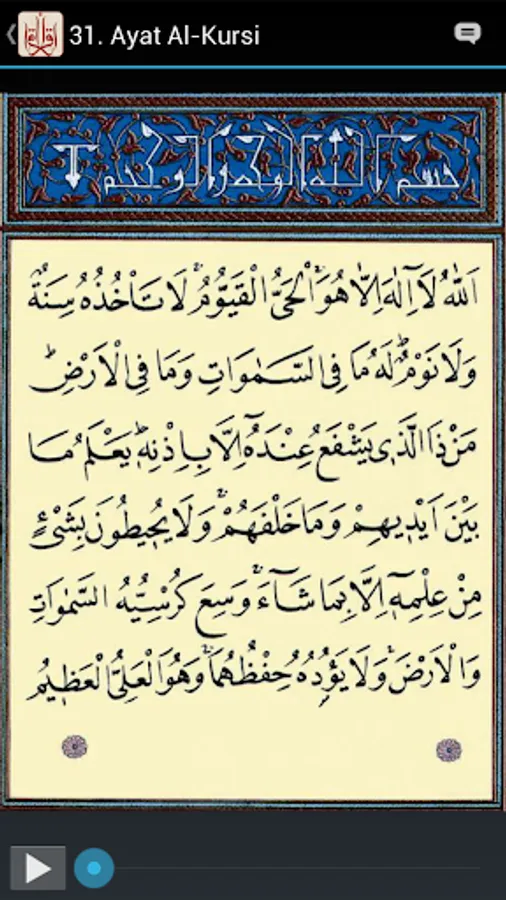 31. Ayat Al-Kursi
بسم الله الرحمن الرحيم
اَللّٰهُ لَٓا اِلٰهَ اِلَّا هُوَۚ اَلْحَيُّ الْقَيُّومُۚ لَا تَأْخُذُهُ سِنَةٌ
وَلَا نَوْمٌۜ لَهُ مَا فِي السَّمٰوَاتِ وَمَا فِي الْاَرْضِۜ
مَنْ ذَا الَّذ۪ي يَشْفَعُ عِنْدَهُٓ اِلَّا بِاِذْنِه۪ۜ يَعْلَمُ مَا
بَيْنَ اَيْد۪يهِمْ وَمَا خَلْفَهُمْۚ وَلَا يُح۪يطُونَ بِشَيْءٍ
مِنْ عِلْمِه۪ٓ اِلَّا بِمَا شَٓاءَۚ وَسِعَ كُرْسِيُّهُ السَّمٰوَاتِ
وَالْاَرْضَۚ وَلَا يَؤُ۫دُهُ حِفْظُهُمَاۚ وَهُوَ الْعَلِيُّ الْعَظ۪يمُ